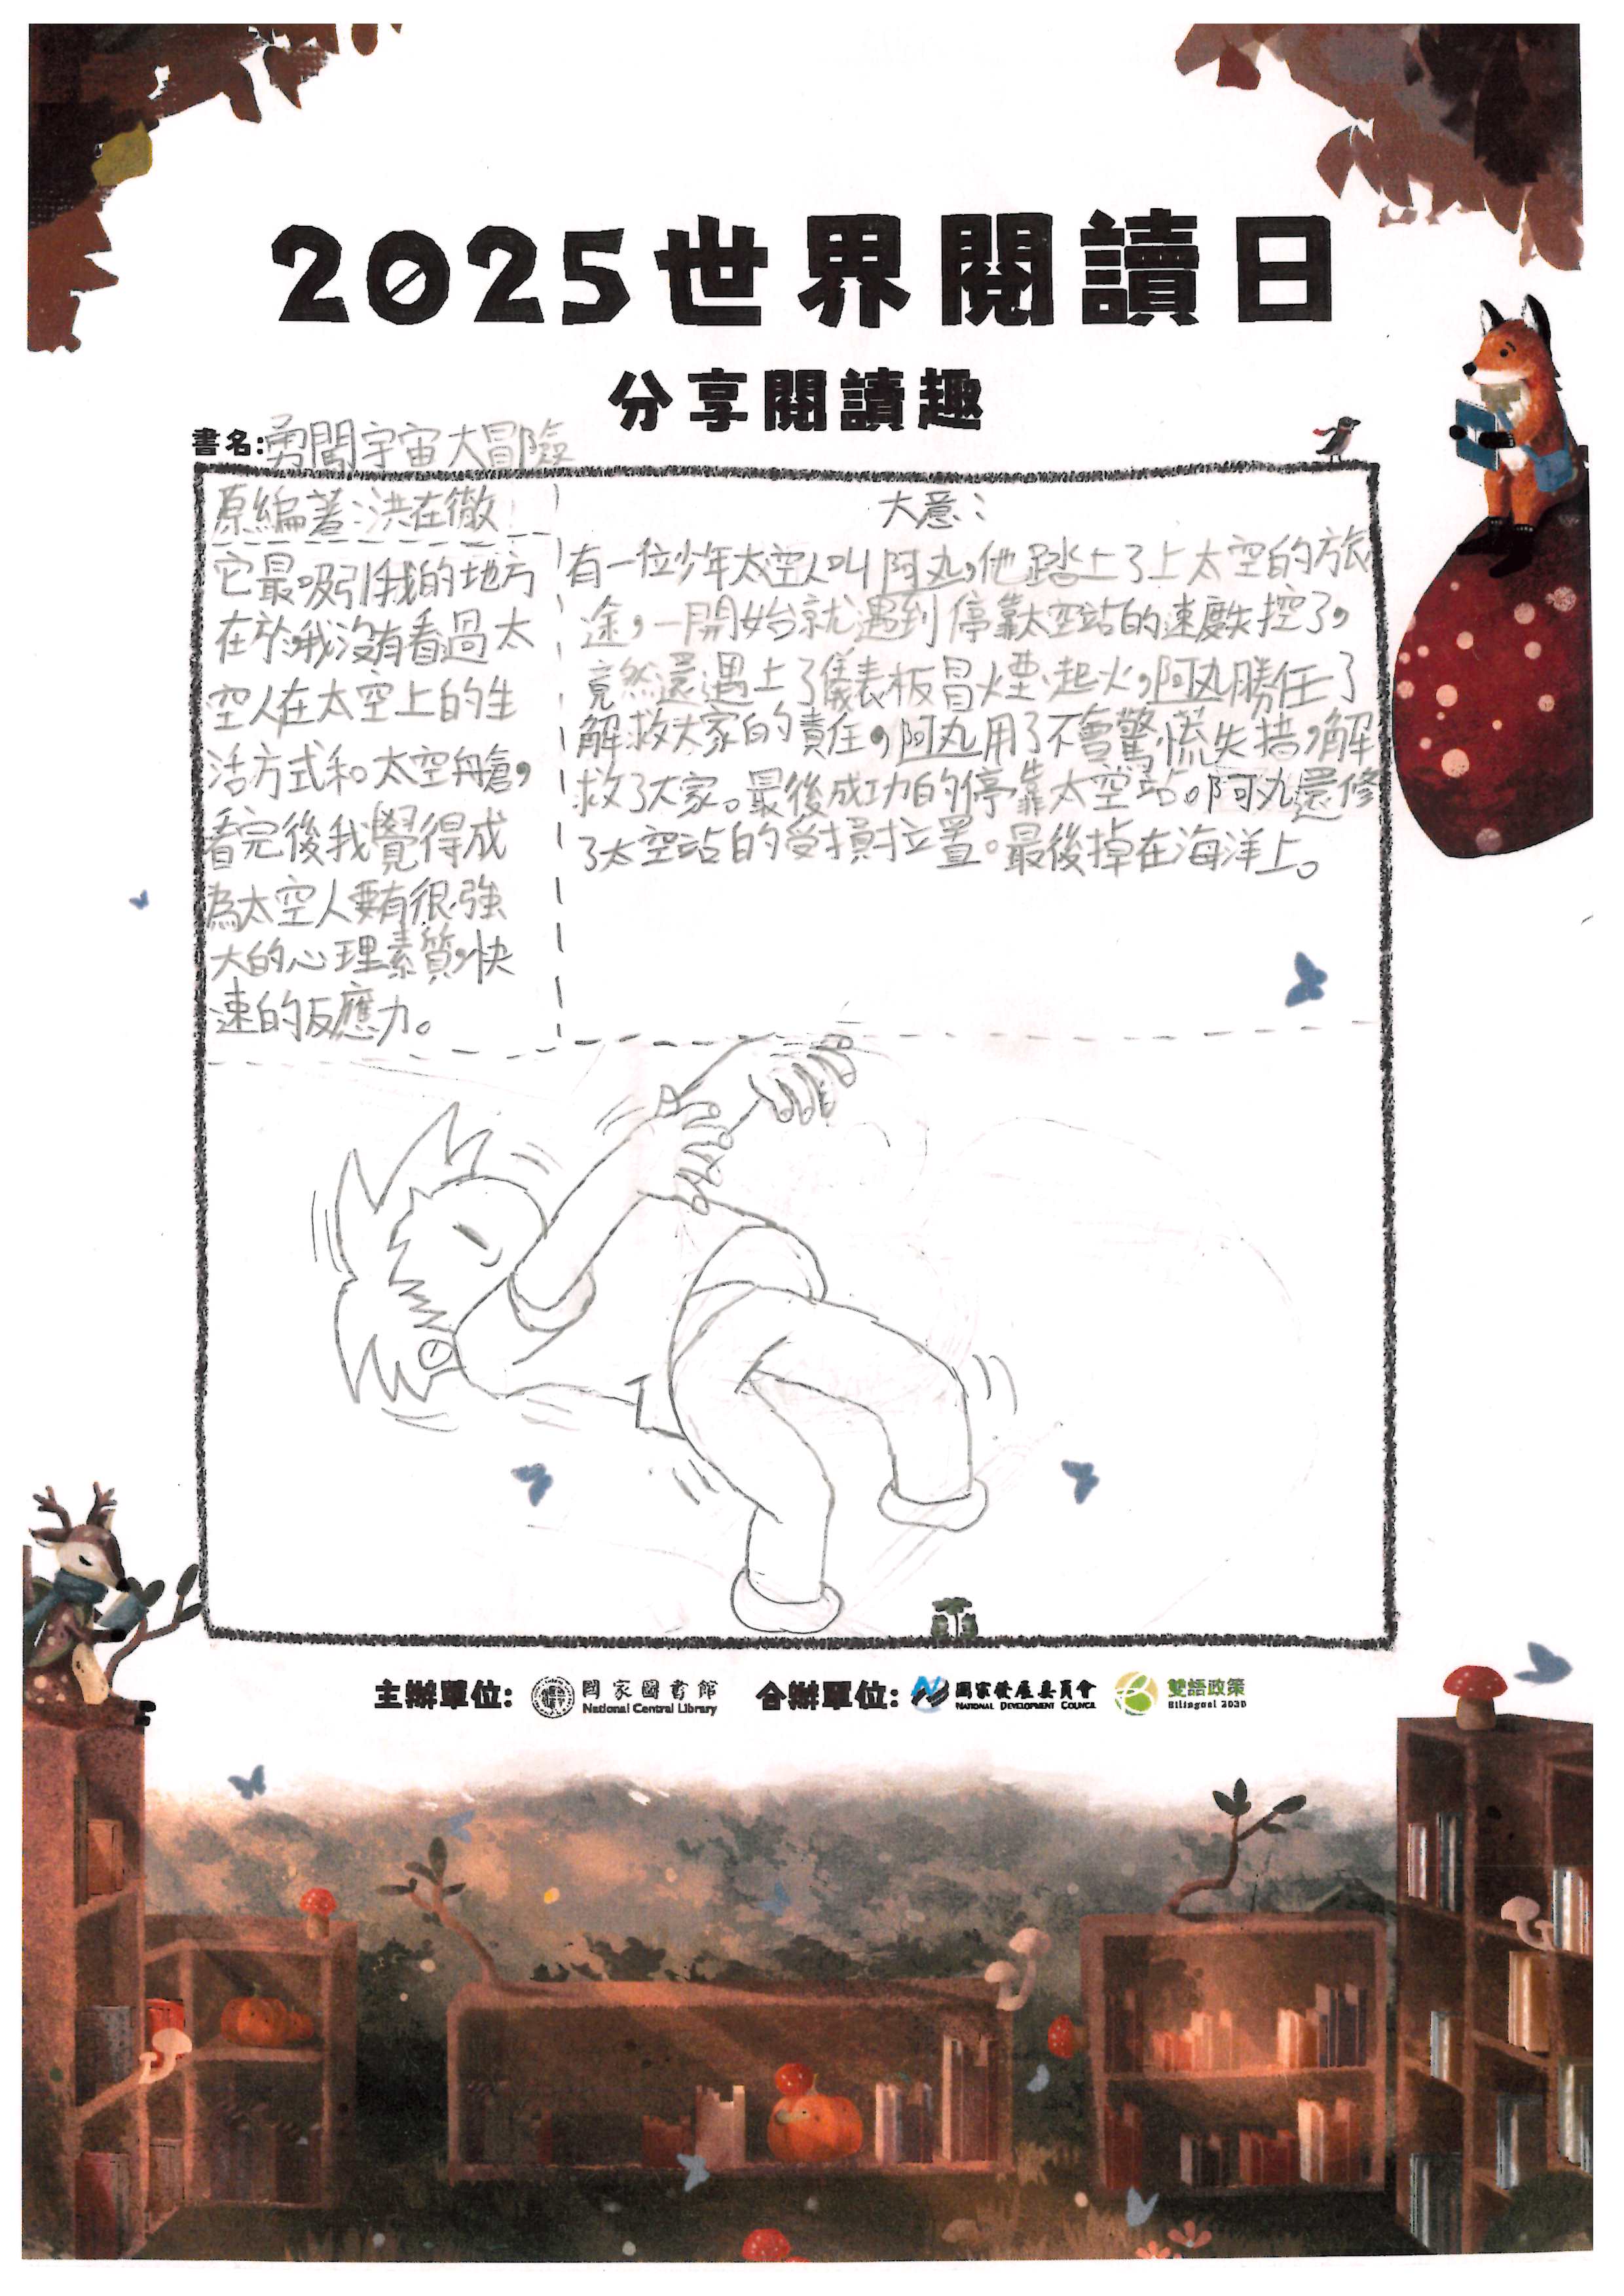 2025世界閱讀日
分享閱讀趣
書名:勇闖宇宙大冒險
原編著:洪在徹
它最吸引我的地方
在於,我沒有看過太
空人在太空上的生
活方式和太空舟艙,
看完後我覺得成
為太空人要有很強
大的心理素質,快
速的反應力。
大意:
有一位少年太空人叫阿丸,他踏上了上太空的旅
途,一開始就遇到停靠太空站的速度失控了,
竟然還遇上了儀表板冒煙、起火,阿丸勝任了
解救大家的責任,阿丸用了不會驚慌失措,解
救了大家。最後成功的停靠太空站。阿丸還修
了太空站的受損位置。最後掉在海洋上。
主辦單位: 國家圖書館 合辦單位: 國家發展委員會 雙語政策
National Central Library NATIONAL DEVELOPMENT COUNCIL Bilingual 2030